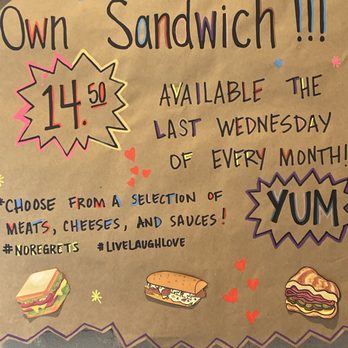 Own Sandwich !!!
14.50
AVAILABLE THE
LAST WEDNESDAY
OF EVERY MONTH!
*CHOOSE FROM A SELECTION OF
MEATS, CHEESES, AND SAUCES!
#NOREGRETS #LIVELAUGHLOVE
YUM